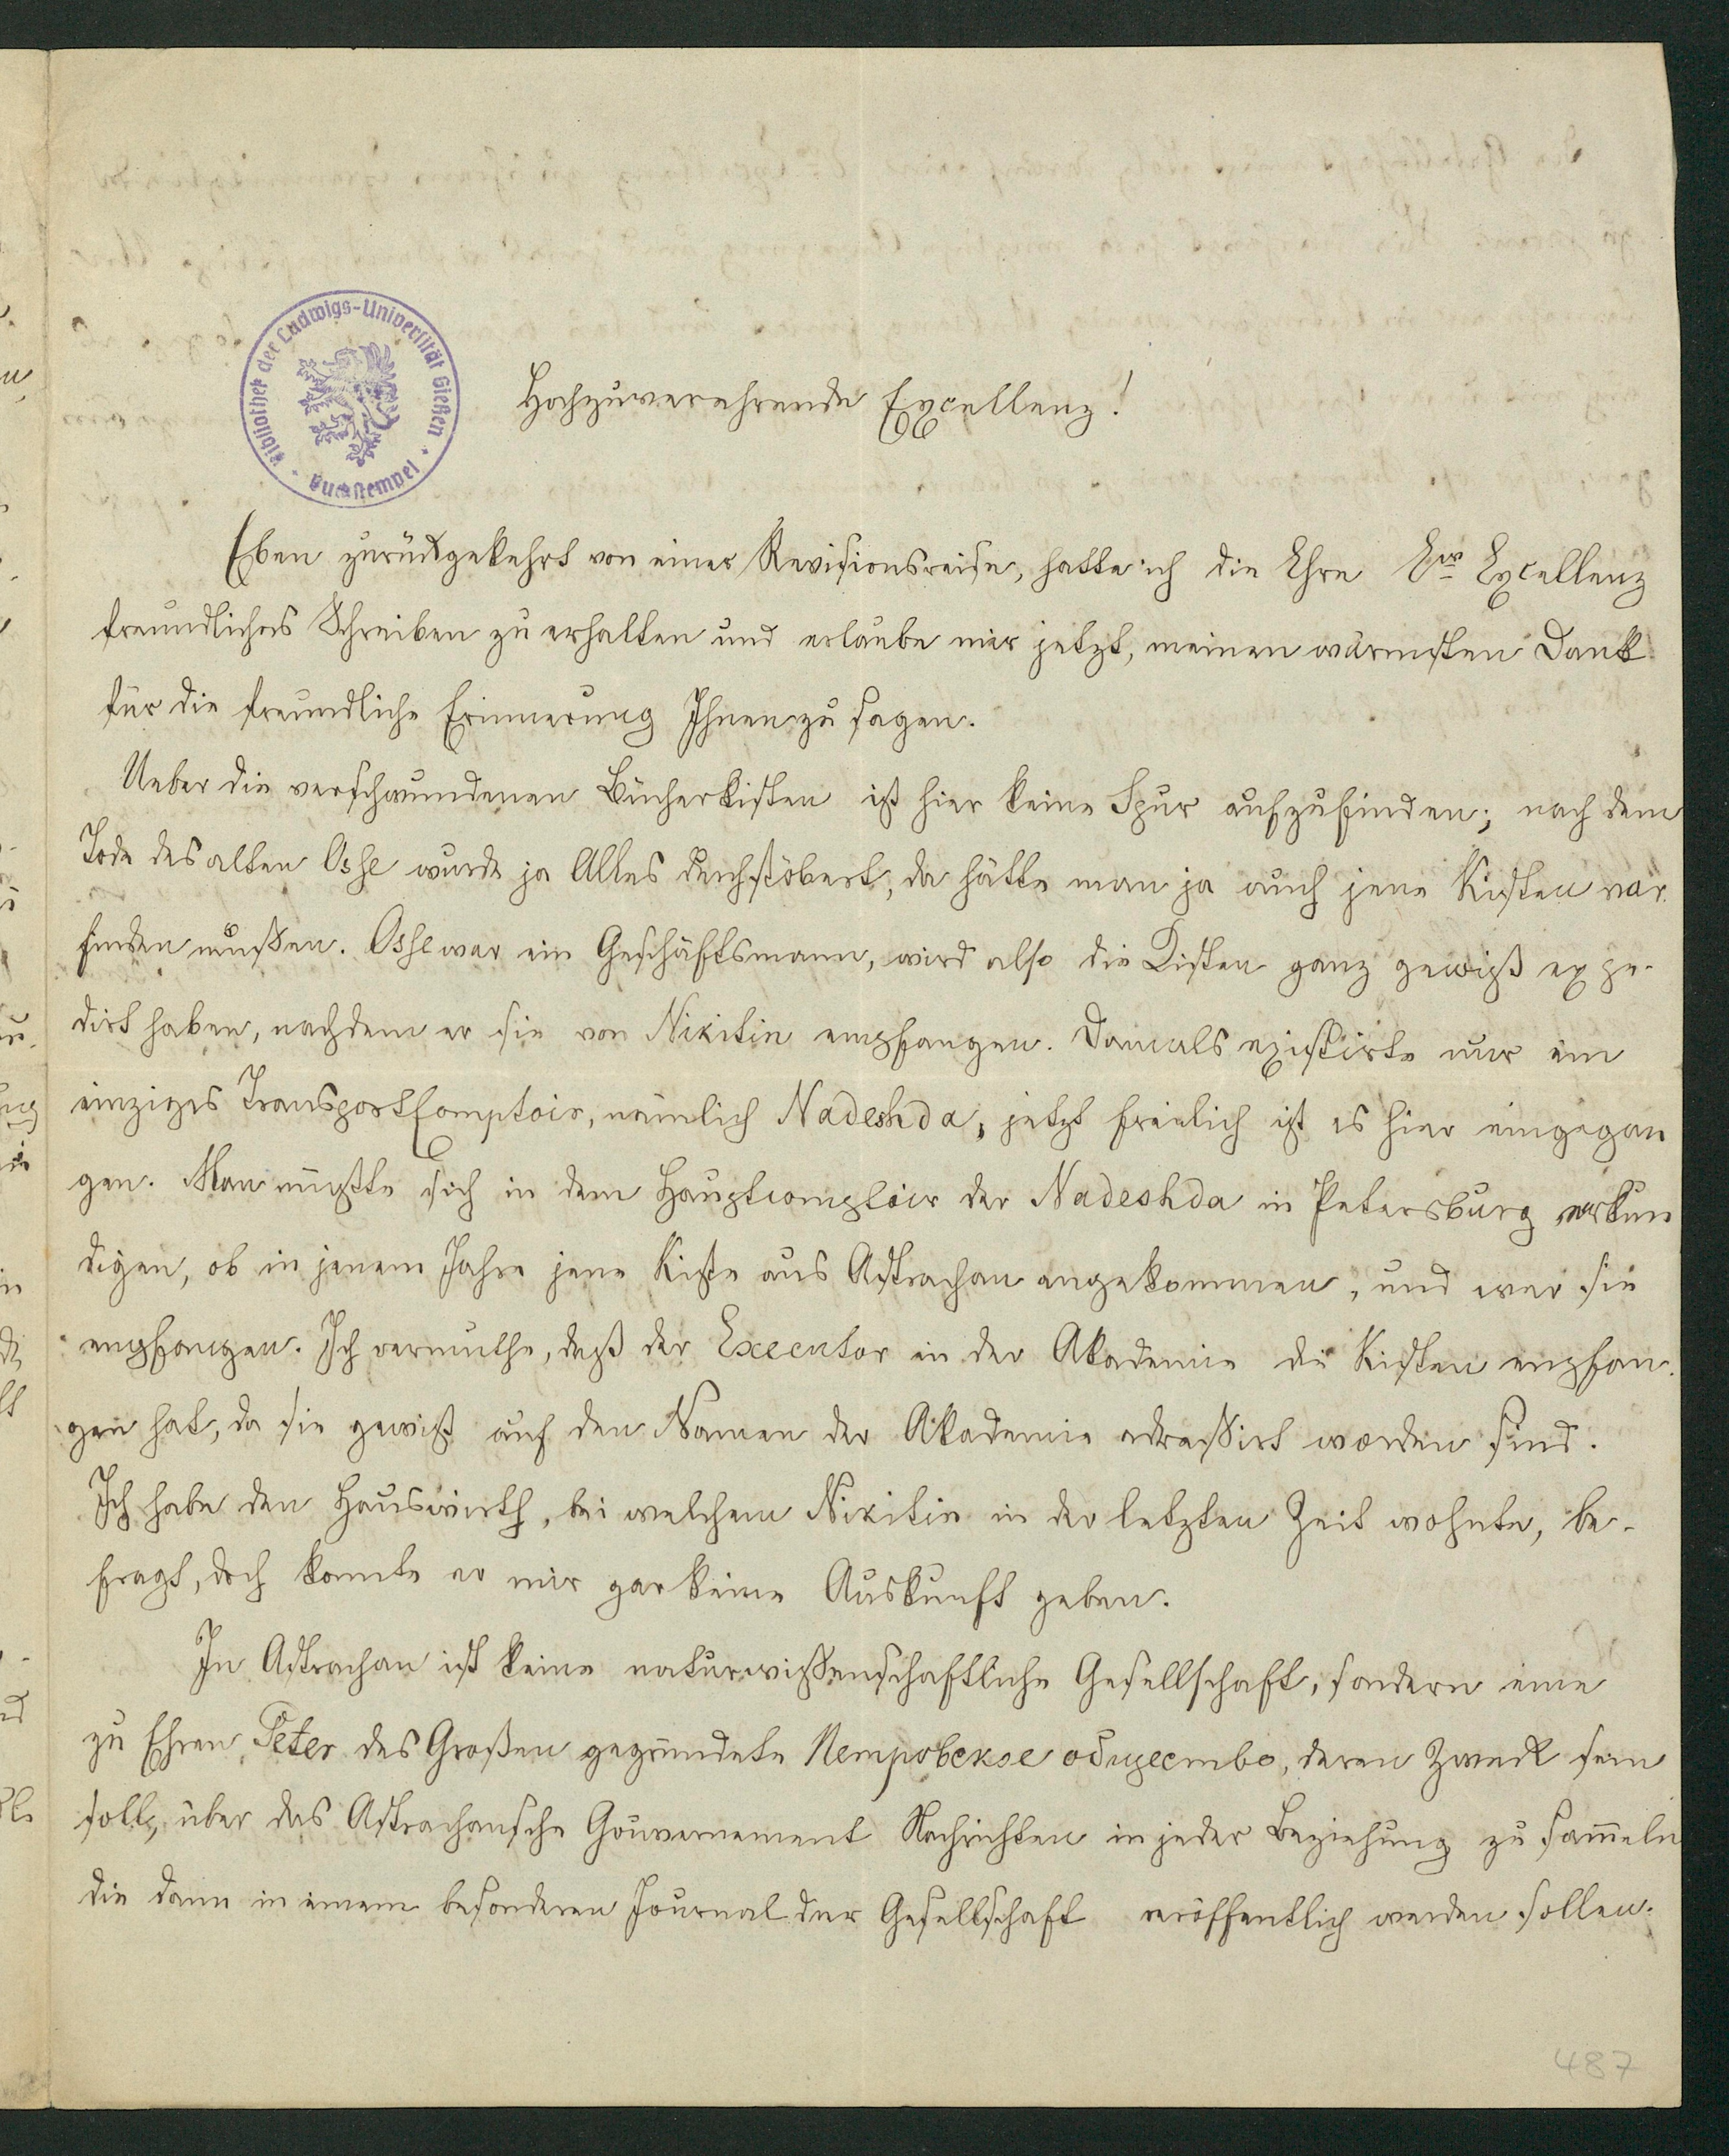 Bibliothek der Ludwigs-Universität Gießen · Buchstempel ·
Hochzuverehrende Excellenz!
Eben zurückgekehrt von einer Revisionsreise, hatte ich die Ehre Ew Excellenz
freundliches Schreiben zu erhalten und erlaube mir jetzt, meinen wärmsten Dank
für die freundliche Erinnerung Ihnen zu sagen.
Ueber die verschwundenen Bücherkisten ist hier keine Spur aufzufinden; nach dem
Tode des alten Osse wurde ja Alles durchstöbert, da hätte man ja auch jene Kisten vor
finden müßen. Osse war ein Geschäftsmann, wird also die Kisten ganz gewiß expe-
dirt haben, nachdem er sie von Nikitin empfangen. Damals existirte nur ein
einziges TransportComptoir, nämlich Nadeshda, jetzt freilich ist es hier eingegan
gen. Man müßte sich in dem Hauptcomptoir der Nadeshda in Petersburg erkun
digen, ob in jenem Jahre jene Kiste aus Astrachan angekommen, und wer sie
empfangen. Ich vermuthe, daß der Executor in der Akademie die Kisten empfan-
gen hat, da sie gewiß auf den Namen der Akademie adressirt worden sind.
Ich habe den Hauswirth, bei welchem Nikitin in der letzten Zeit wohnte, be-
fragt, doch konnte er mir gar keine Auskunft geben.
In Astrachan ist keine naturwißenschaftliche Gesellschaft, sondern eine
zu Ehren Peter des Großen gegründete Петровское общество, deren Zweck sein
soll, über das Astrachansche Gouvernement Nachrichten in jeder Beziehung zu sam̄eln
die dann in einem besonderen Journal der Gesellschaft veröffentlich werden sollen.
487